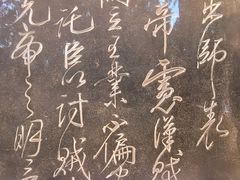 出師表
帝慮漢賊
兩立王業不偏
託臣以討賊
先帝之明